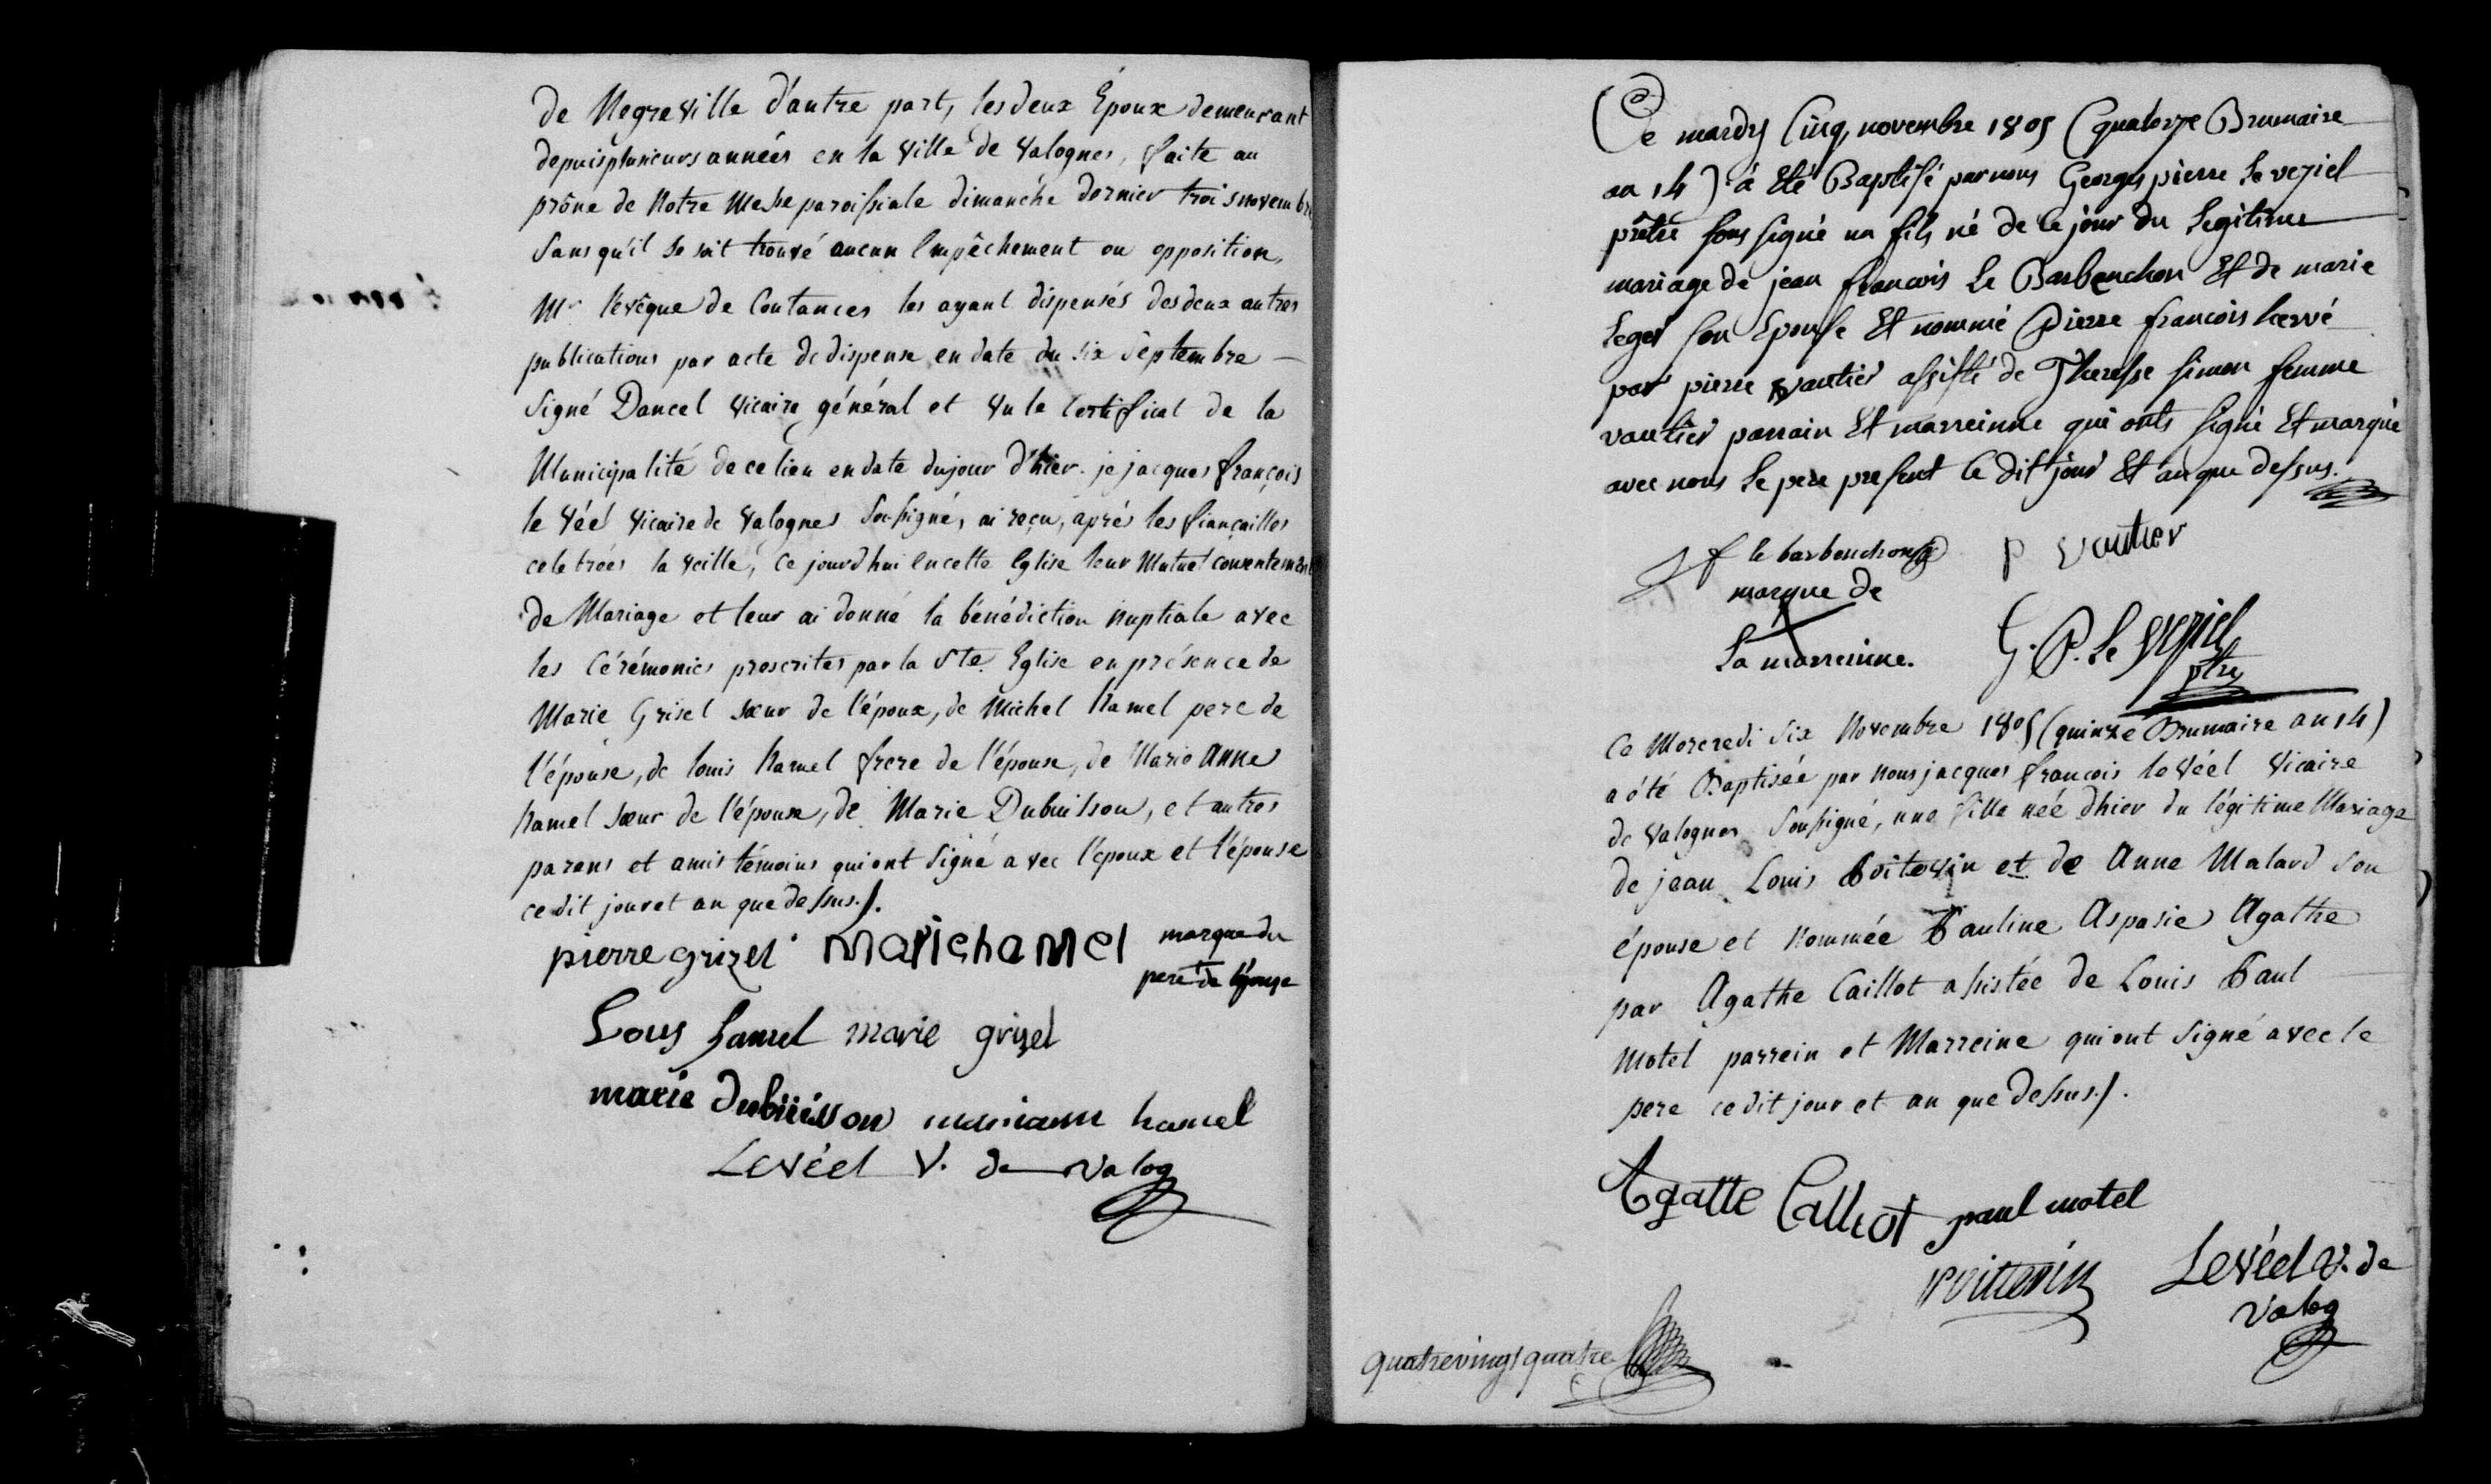 de Negreville d'autre part, les deux Époux demeurant
depuis plusieurs années en la Ville de Valognes, faite au
prône de Notre Messe paroissiale dimanche dernier trois novembre
sans qu'il se soit trouvé aucun Empêchement ou opposition,
Mr l'évêque de Coutances les ayant dispensés des deux autres
publications par acte de dispense en date du six septembre
signé Dancel Vicaire général et vu le Certificat de la
Municipalité de ce lieu en date du jour d'hier. je jacques françois
le Véel Vicaire de Valognes Soussigné, ai reçu, aprés les fiançailles
celebrées la veille, ce jourd'hui en cette Eglise leur Mutuel consentement
de Mariage et leur ai donné la bénédiction nuptiale avec
les Cérémonies prescrites par la Ste. Eglise en présence de
Marie Grisel sœur de l'époux, de Michel hamel pere de
l'épouse, de louis hamel frere de l'épouse, de Marie Anne
hamel sœur de l'épouse, de Marie Dubuisson, et autres
parens et amis témoins qui ont signé avec l'époux et l'épouse
ce dit jour et an que dessus./.
pierre grizel marichamel marque du
+
pere de l'épouse
Lous hamel marie grizel
marie dubuisson mariann hamel
Levéel V. de Valog
Ce mardy Cinq novembre 1805 (quatorze Brumaire
an 14) à Eté Baptisé par nous Georges pierre Le veziel
prêtre sous signé un fils né de ce jour du Legitime
mariage de jean francois Le Barbenchon Et de marie
Leger son Epouse Et nommé Pierre francois hervé
par pierre vautier assisté de Therese simon femme
vautier parrain Et marreinne qui onts signé Et marqué
avec nous Le pere present Ce dit jour Et an que dessus.
J f le barbenchon p vautier
marque de
X
La marreinne. G. P. Le Veziel
ptre
Ce Mercredi six Novembre 1805 (quinze Brumaire an 14)
a été Baptisée par nous jacques françois le Véel Vicaire
de Valognes Soussigné, une fille née d'hier du légitime Mariage
de jean Louis Poitevin et de Anne Malard son
épouse et Nommée Pauline Aspasie Agathe
par Agathe Caillot assistée de Louis Paul
Motel parrein et Marreine qui ont signé avec le
pere ce dit jour et an que dessus./.
Agatte Calliot paul motel
Poittevin Levéel V. de
Valog
quatrevingt quatre